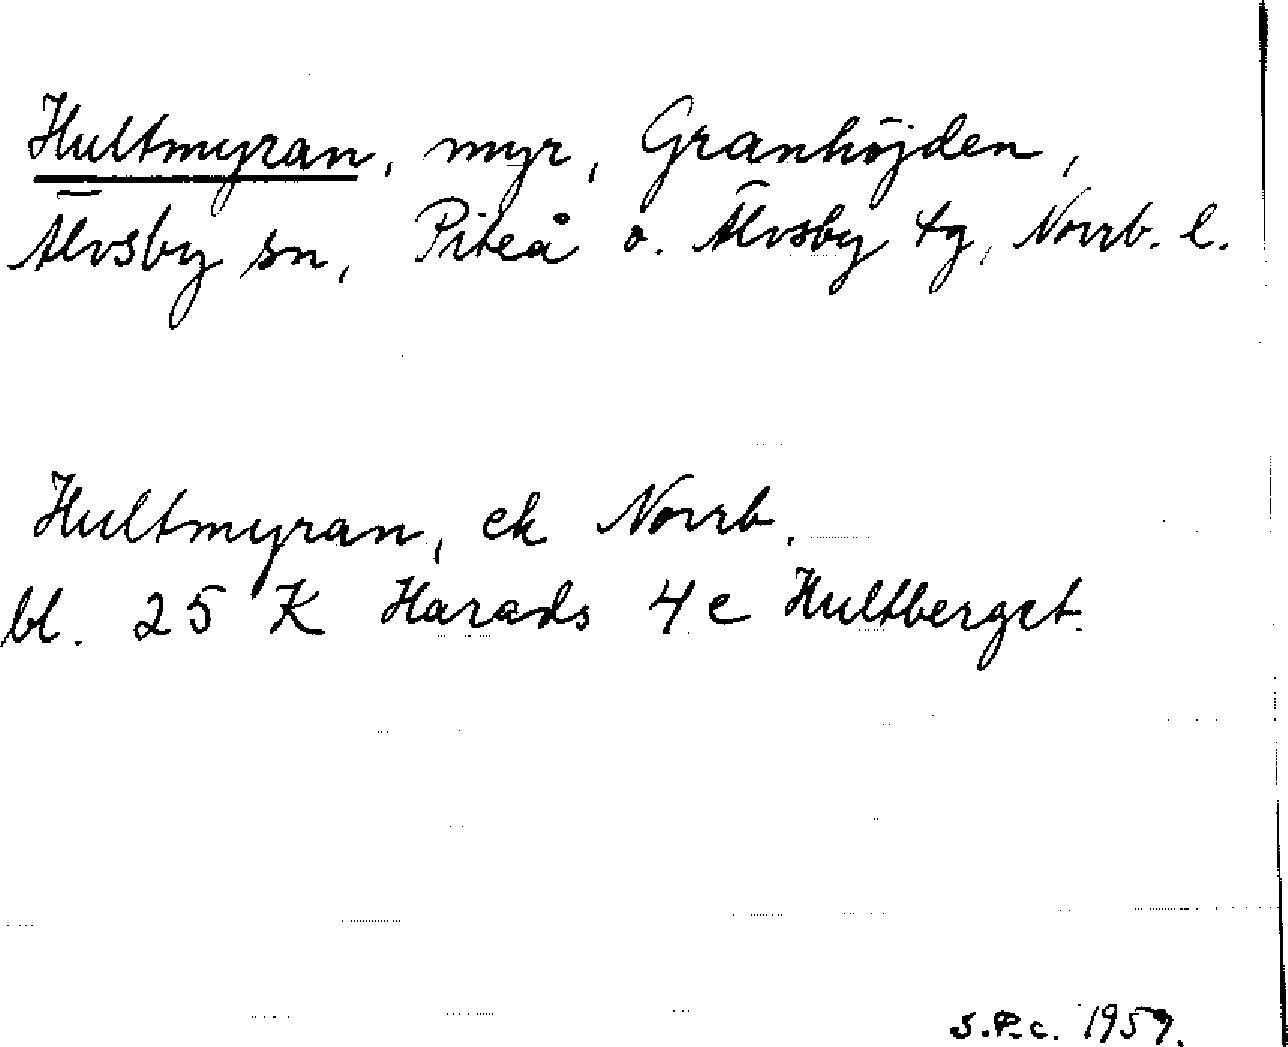 Hultmyran, myr, Granhöjden,
Älvsby sn, Piteå o. Älvsby tg, Norrb. l.
Hultmyran, ek Norrb.
bl. 25 K Harads 4c Hultberget.
S.P.c. 1959.